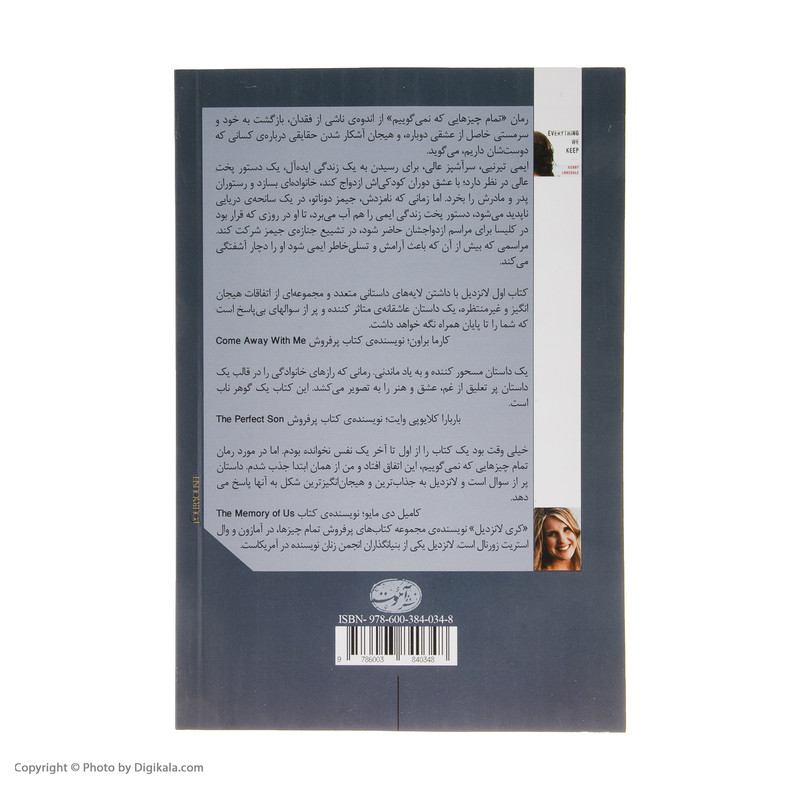 رمان «تمام چیزهایی که نمی‌گوییم» از اندوه‌ی ناشی از فقدان، بازگشت به خود و
سرمستی حاصل از عشقی دوباره، و هیجان آشکار شدن حقایقی درباره‌ی کسانی که
دوست‌شان داریم، می‌گوید.
ایمی تیرنیی، سرآشپز عالی، برای رسیدن به یک زندگی ایده‌آل، یک دستور پخت
عالی در نظر دارد؛ با عشق دوران کودکی‌اش ازدواج کند، خانواده‌ای بسازد و رستوران
پدر و مادرش را بخرد. اما زمانی که نامزدش، جیمز دوناتو، در یک سانحه‌ی دریایی
ناپدید می‌شود، دستور پخت زندگی ایمی را هم آب می‌برد، تا او در روزی که قرار بود
در کلیسا برای مراسم ازدواجشان حاضر شود، در تشییع جنازه‌ی جیمز شرکت کند.
مراسمی که بیش از آن که باعث آرامش و تسلی‌خاطر ایمی شود او را دچار آشفتگی
می‌کند.
کتاب اول لانزدیل با داشتن لایه‌های داستانی متعدد و مجموعه‌ای از اتفاقات هیجان
انگیز و غیرمنتظره، یک داستان عاشقانه‌ی متاثر کننده و پر از سوالهای بی‌پاسخ است
که شما را تا پایان همراه نگه خواهد داشت.
کارما براون؛ نویسنده‌ی کتاب پرفروش Come Away With Me
یک داستان مسحور کننده و به یاد ماندنی. رمانی که رازهای خانوادگی را در قالب یک
داستان پر تعلیق از غم، عشق و هنر را به تصویر می‌کشد. این کتاب یک گوهر ناب
است.
باربارا کلایوپی وایت؛ نویسنده‌ی کتاب پرفروش The Perfect Son
خیلی وقت بود یک کتاب را از اول تا آخر یک نفس نخوانده بودم. اما در مورد رمان
تمام چیزهایی که نمی‌گوییم، این اتفاق افتاد و من از همان ابتدا جذب شدم. داستان
پر از سوال است و لانزدیل به جذاب‌ترین و هیجان‌انگیزترین شکل به آنها پاسخ می
دهد.
کامیل دی مایو؛ نویسنده‌ی کتاب The Memory of Us
«کری لانزدیل» نویسنده‌ی مجموعه کتاب‌های پرفروش تمام چیزها، در آمازون و وال
استریت ژورنال است. لانزدیل یکی از بنیانگذاران انجمن زنان نویسنده در آمریکاست.
EVERYTHING
WE
KEEP
KERRY
LONSDALE
نشر آموت
ISBN- 978-600-384-034-8
9 786003 840348
Copyright © Photo by Digikala.com